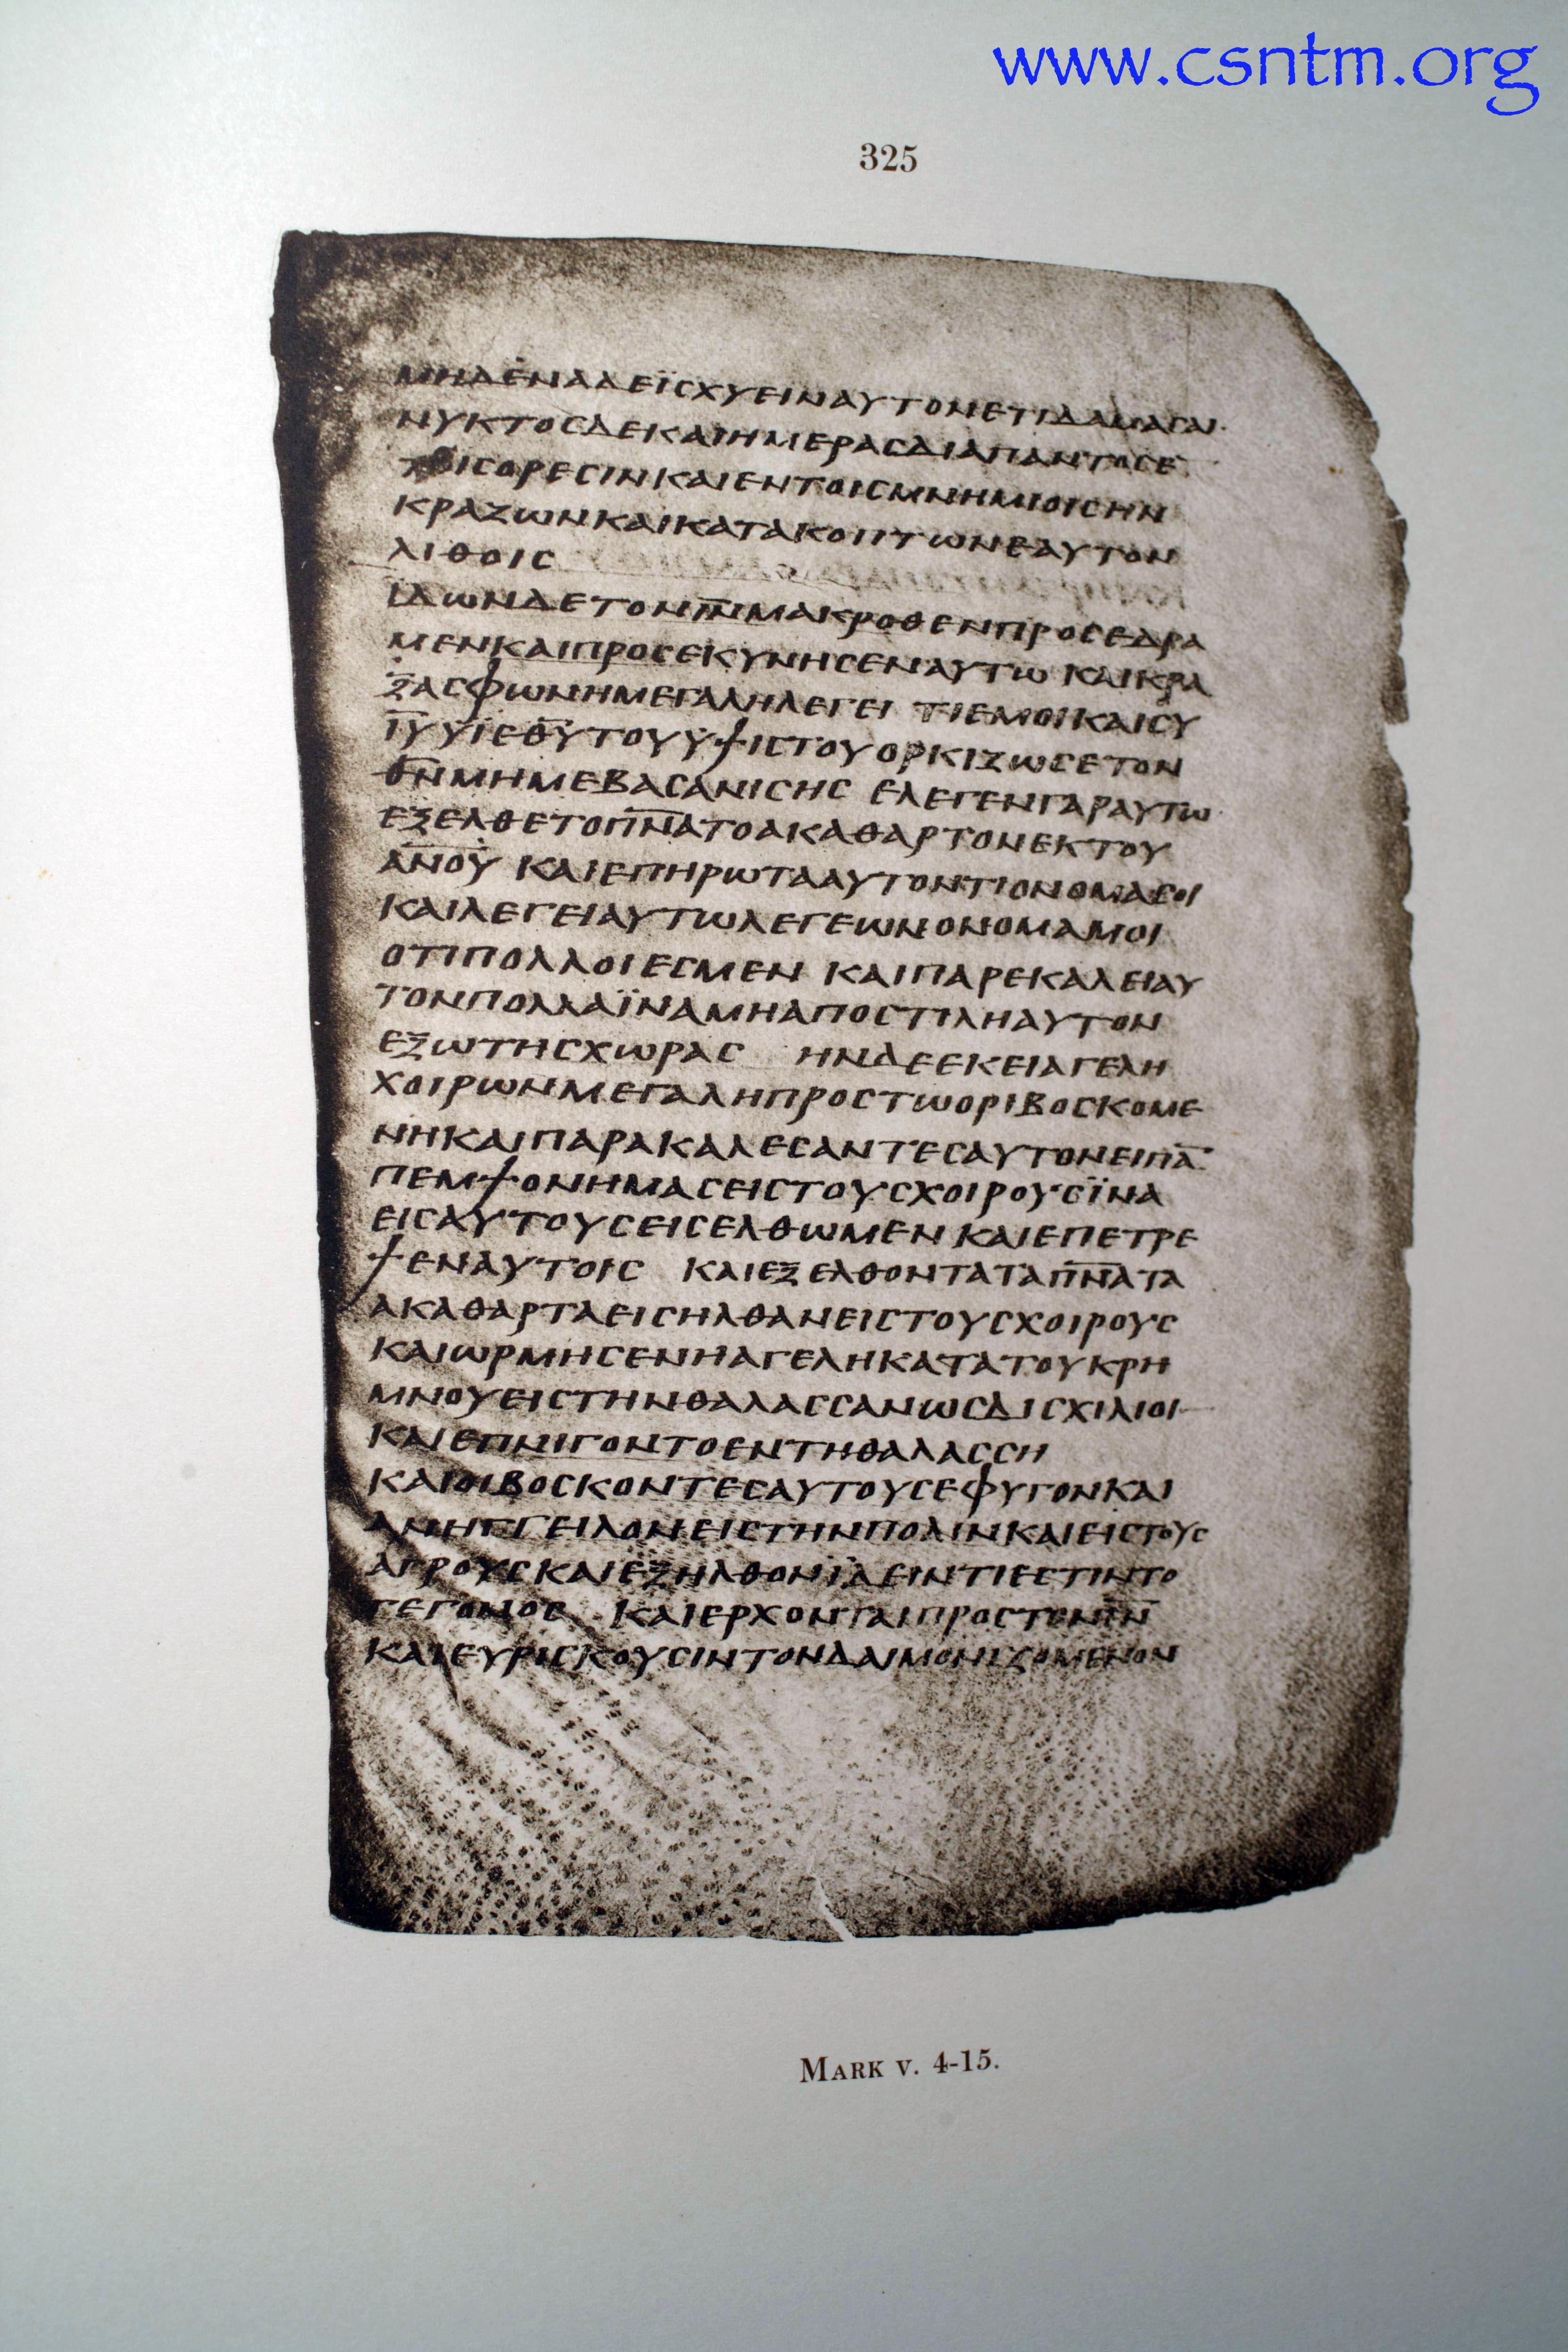 www.csntm.org
325
ΜΗΔΕΝΑΔΕΪCΧΥΕΙΝΑΥΤΟΝΕΤΙΔΑΜΑCΑΙ·
ΝΥΚΤΟCΔΕΚΑΙΗΜΕΡΑCΔΙΑΠΑΝΤΟCΕ
ΤΟΙCΟΡΕCΙΝΚΑΙΕΝΤΟΙCΜΝΗΜΙΟΙCΗΝ
ΚΡΑΖΩΝΚΑΙΚΑΤΑΚΟΠΤΩΝΕΑΥΤΟΝ
ΛΙΘΟΙC
ΙΔΩΝΔΕΤΟΝΙ̅Ν̅ΜΑΚΡΟΘΕΝΠΡΟCΕΔΡΑ
ΜΕΝΚΑΙΠΡΟCΕΚΥΝΗCΕΝΑΥΤΩ ΚΑΙΚΡΑ
ΞΑCΦΩΝΗΜΕΓΑΛΗΛΕΓΕΙ ΤΙΕΜΟΙΚΑΙCΥ
Ι̅Υ̅ΥΪΕΘ̅Υ̅ΤΟΥΫΨΙCΤΟΥΟΡΚΙΖΩCΕΤΟΝ
Θ̅Ν̅ΜΗΜΕΒΑCΑΝΙCΗC ΕΛΕΓΕΝΓΑΡΑΥΤΩ·
ΕΞΕΛΘΕΤΟΠ̅Ν̅Α̅ΤΟΑΚΑΘΑΡΤΟΝΕΚΤΟΥ
Α̅Ν̅Ο̅Υ̅ ΚΑΙΕΠΗΡΩΤΑΑΥΤΟΝΤΙΟΝΟΜΑCΟΙ
ΚΑΙΛΕΓΕΙΑΥΤΩΛΕΓΕΩΝΟΝΟΜΑΜΟΙ
ΟΤΙΠΟΛΛΟΙΕCΜΕΝ ΚΑΙΠΑΡΕΚΑΛΕΙΑΥ
ΤΟΝΠΟΛΛΑΪΝΑΜΗΑΠΟCΤΙΛΗΑΥΤΟΝ
ΕΞΩΤΗCΧΩΡΑC ΗΝΔΕΕΚΕΙΑΓΕΛΗ
ΧΟΙΡΩΝΜΕΓΑΛΗΠΡΟCΤΩΟΡΙΒΟCΚΟΜΕ
ΝΗΚΑΙΠΑΡΑΚΑΛΕCΑΝΤΕCΑΥΤΟΝΕΙΠΑ̅·
ΠΕΜΨΟΝΗΜΑCΕΙCΤΟΥCΧΟΙΡΟΥCΪΝΑ
ΕΙCΑΥΤΟΥCΕΙCΕΛΘΩΜΕΝ ΚΑΙΕΠΕΤΡΕ
ΨΕΝΑΥΤΟΙC ΚΑΙΕΞΕΛΘΟΝΤΑΤΑΠ̅Ν̅Α̅ΤΑ
ΑΚΑΘΑΡΤΑΕΙCΗΛΘΑΝΕΙCΤΟΥCΧΟΙΡΟΥC
ΚΑΙΩΡΜΗCΕΝΗΑΓΕΛΗΚΑΤΑΤΟΥΚΡΗ
ΜΝΟΥΕΙCΤΗΝΘΑΛΑCCΑΝΩCΔΙCΧΙΛΙΟΙ
ΚΑΙΕΠΝΙΓΟΝΤΟΕΝΤΗΘΑΛΑCCΗ
ΚΑΙΟΙΒΟCΚΟΝΤΕCΑΥΤΟΥCΕΦΥΓΟΝΚΑΙ
ΑΝΗΓΓΕΙΛΟΝΕΙCΤΗΝΠΟΛΙΝΚΑΙΕΙCΤΟΥC
ΑΓΡΟΥCΚΑΙΕΞΗΛΘΟΝΪΔΕΙΝΤΙΕCΤΙΝΤΟ
ΓΕΓΟΝΟC ΚΑΙΕΡΧΟΝΤΑΙΠΡΟCΤΟΝΙ̅Ν̅
ΚΑΙΕΥΡΙCΚΟΥCΙΝΤΟΝΔΑΙΜΟΝΙΖΟΜΕΝΟΝ
MARK V. 4-15.